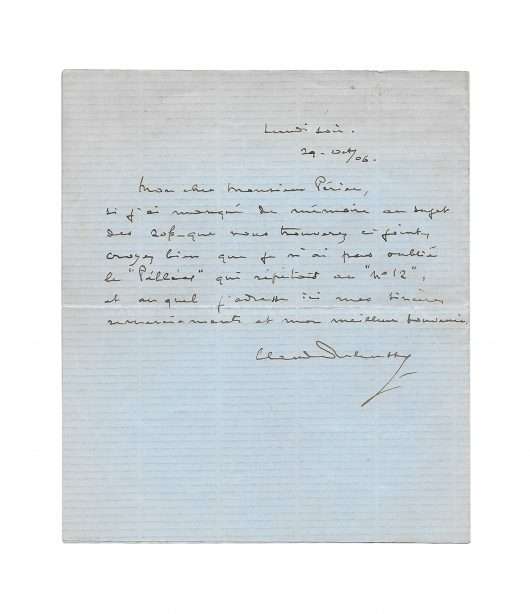 Lundi soir.
29-Oct/06.
Mon cher Monsieur Périer,
si j'ai manqué de mémoire au sujet
des 20f- que vous trouverez ci-joint,
croyez bien que je n'ai pas oublié
le "Pélléas" qui répétait au "no 12",
et auquel j'adresse ici mes sincères
remerciements et mon meilleur souvenir.
Claude Debussy